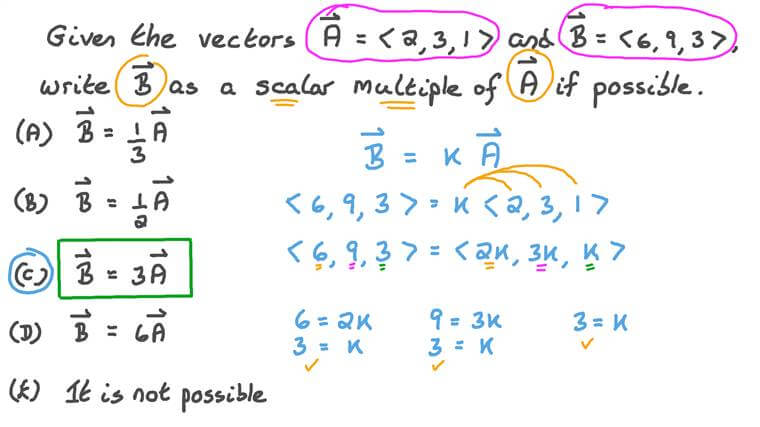 Given the vectors A⃗ = <2, 3, 1> and B⃗ = <6, 9, 3>,
write B⃗ as a scalar multiple of A⃗ if possible.
(A) B⃗ = 1/3 A⃗
(B) B⃗ = 1/2 A⃗
(C) B⃗ = 3A⃗
(D) B⃗ = 6A⃗
(E) It is not possible
B⃗ = K A⃗
<6, 9, 3> = K <2, 3, 1>
<6, 9, 3> = <2K, 3K, K>
6 = 2K 9 = 3K 3 = K
3 = K ✓ 3 = K ✓ ✓